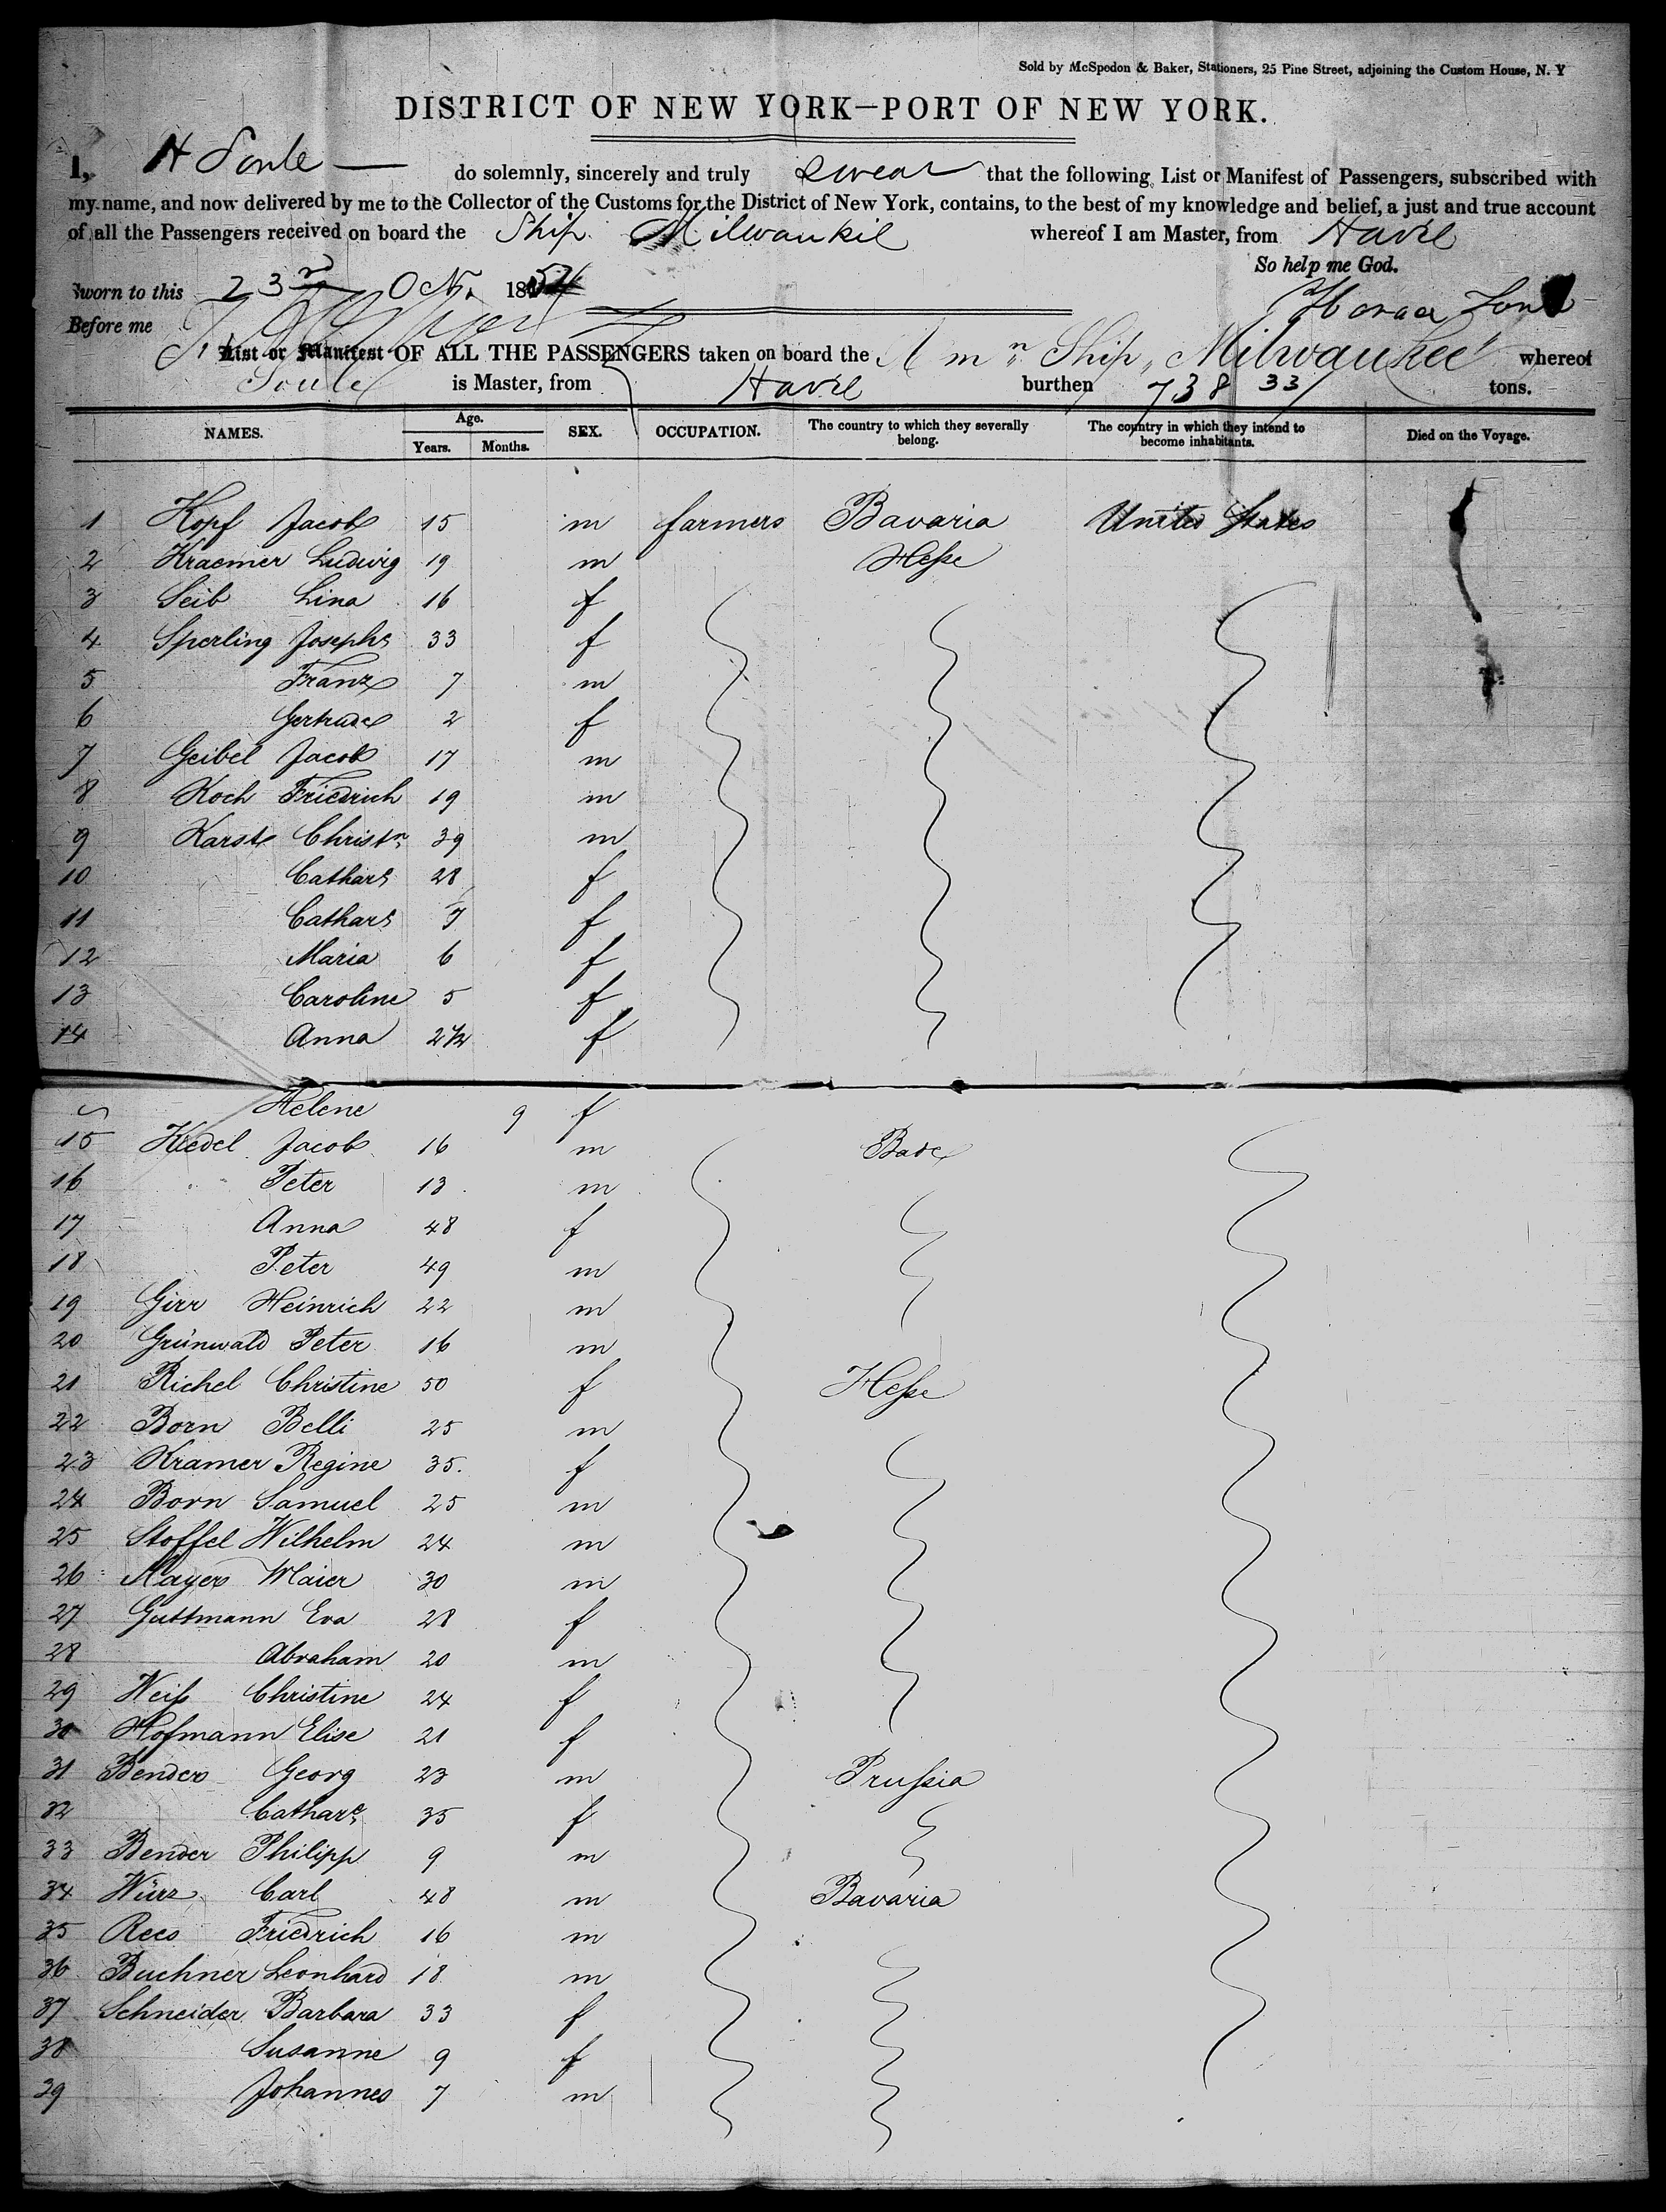 Sold by McSpedon & Baker, Stationers, 25 Pine Street, adjoining the Custom House, N. Y
DISTRICT OF NEW YORK—PORT OF NEW YORK.
I, H Soule — do solemnly, sincerely and truly swear that the following List or Manifest of Passengers, subscribed with
my name, and now delivered by me to the Collector of the Customs for the District of New York, contains, to the best of my knowledge and belief, a just and true account
of all the Passengers received on board the Ship Milwaukie whereof I am Master, from Havre
So help me God.
Sworn to this 23rd Oct. 1854
Horace Soule
Before me
List or Manifest OF ALL THE PASSENGERS taken on board the Amn Ship "Milwaukee" whereof
Soule is Master, from Havre burthen 738 33/ tons.
NAMES. Age. Years. Months. SEX. OCCUPATION. The country to which they severally belong. The country in which they intend to become inhabitants. Died on the Voyage.
1 Kopf Jacob 15 m farmers Bavaria United States
2 Kraemer Ludwig 19 m Hesse
3 Seib Lina 16 f
4 Sperling Josephe 33 f
5 Franz 7 m
6 Gertrude 2 f
7 Geibel Jacob 17 m
8 Koch Friedrich 19 m
9 Karst Christn 39 m
10 Cathare 28 f
11 Cathare 7 f
12 Maria 6 f
13 Caroline 5 f
14 Anna 2 1/2 f
Helene 9 f
15 Hedel Jacob 16 m Bade
16 Peter 13 m
17 Anna 48 f
18 Peter 49 m
19 Girr Heinrich 22 m
20 Grünwald Peter 16 m
21 Richel Christine 50 f Hesse
22 Born Belli 25 m
23 Kramer Regine 35. f
24 Born Samuel 25 m
25 Stoffel Wilhelm 24 m
26 Mayer Maier 30 m
27 Guttmann Eva 28 f
28 Abraham 20 m
29 Weiß Christine 24 f
30 Hofmann Elise 21 f
31 Bender Georg 23 m Prussia
32 Cathare 35 f
33 Bender Philipp 9 m
34 Würz Carl 48 m Bavaria
35 Rees Friedrich 16 m
36 Buchner Leonhard 18 m
37 Schneider Barbara 33 f
38 Susanne 9 f
39 Johannes 7 m